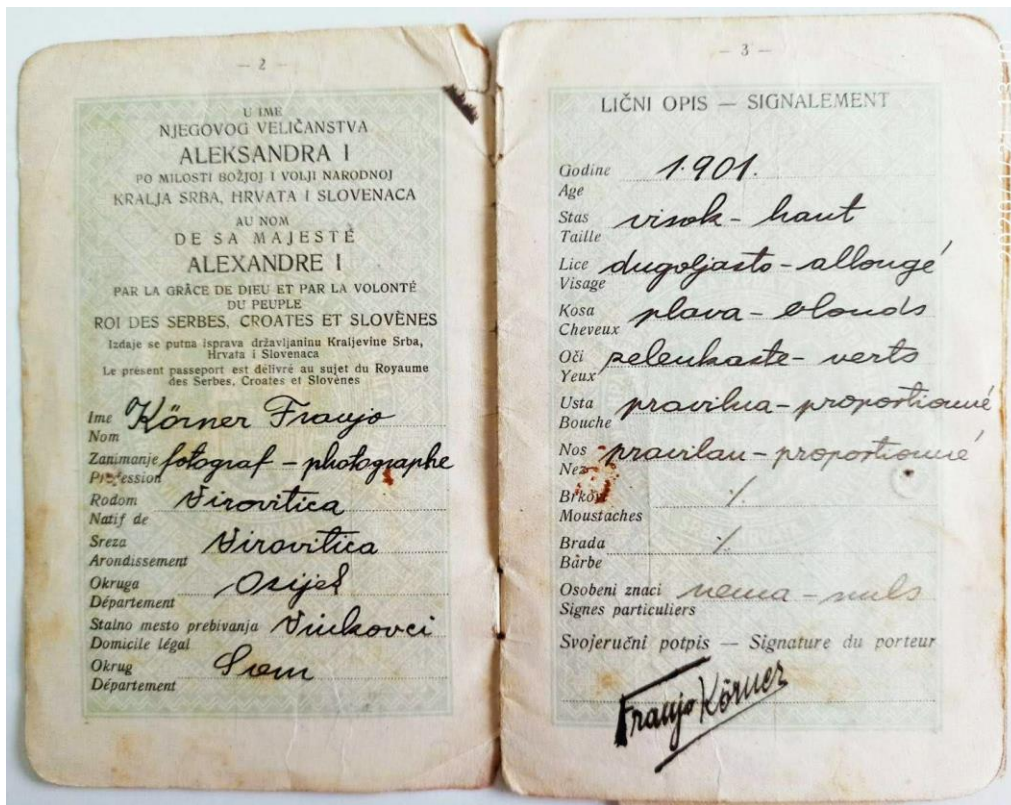 — 2 —
U IME
NJEGOVOG VELIČANSTVA
ALEKSANDRA I
PO MILOSTI BOŽJOJ I VOLJI NARODNOJ
KRALJA SRBA, HRVATA I SLOVENACA
AU NOM
DE SA MAJESTÉ
ALEXANDRE I
PAR LA GRÂCE DE DIEU ET PAR LA VOLONTÉ
DU PEUPLE
ROI DES SERBES, CROATES ET SLOVÈNES
Izdaje se putna isprava državljaninu Kraljevine Srba,
Hrvata i Slovenaca
Le présent passeport est délivré au sujet du Royaume
des Serbes, Croates et Slovènes
Ime Körner Franjo
Nom
Zanimanje fotograf - photographe
Profession
Rodom Virovitica
Natif de
Sreza Virovitica
Arondissement
Okruga Osijek
Département
Stalno mesto prebivanja Vinkovci
Domicile légal
Okrug Srem
Département
— 3 —
LIČNI OPIS — SIGNALEMENT
Godine 1901.
Age
Stas visok - haut
Taille
Lice dugoljasto - allongé
Visage
Kosa plava - blonds
Cheveux
Oči zelenkaste - verts
Yeux
Usta pravilna - proportionné
Bouche
Nos pravilan - proportionné
Nez
Brkovi ⁒
Moustaches
Brada ⁒
Barbe
Osobeni znaci nema - nuls
Signes particuliers
Svojeručni potpis — Signature du porteur
Franjo Körner